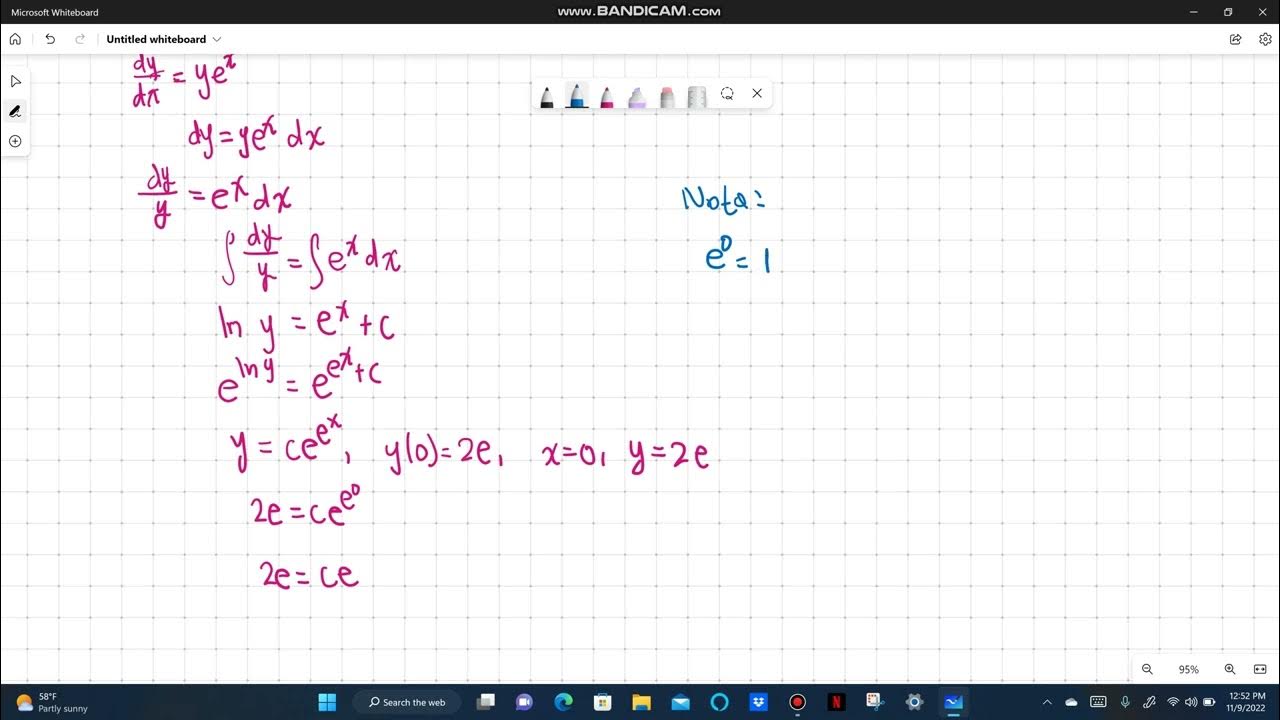 Microsoft Whiteboard
WWW.BANDICAM.COM
Untitled whiteboard
dy/dx = ye^x
dy = ye^x dx
dy/y = e^x dx
∫ dy/y = ∫ e^x dx
ln y = e^x + c
e^ln y = e^e^x + c
y = ce^e^x, y(0) = 2e, x=0, y=2e
2e = ce^e^0
2e = ce
Nota:
e^0 = 1
95%
58°F
Partly sunny
Search the web
12:52 PM
11/9/2022